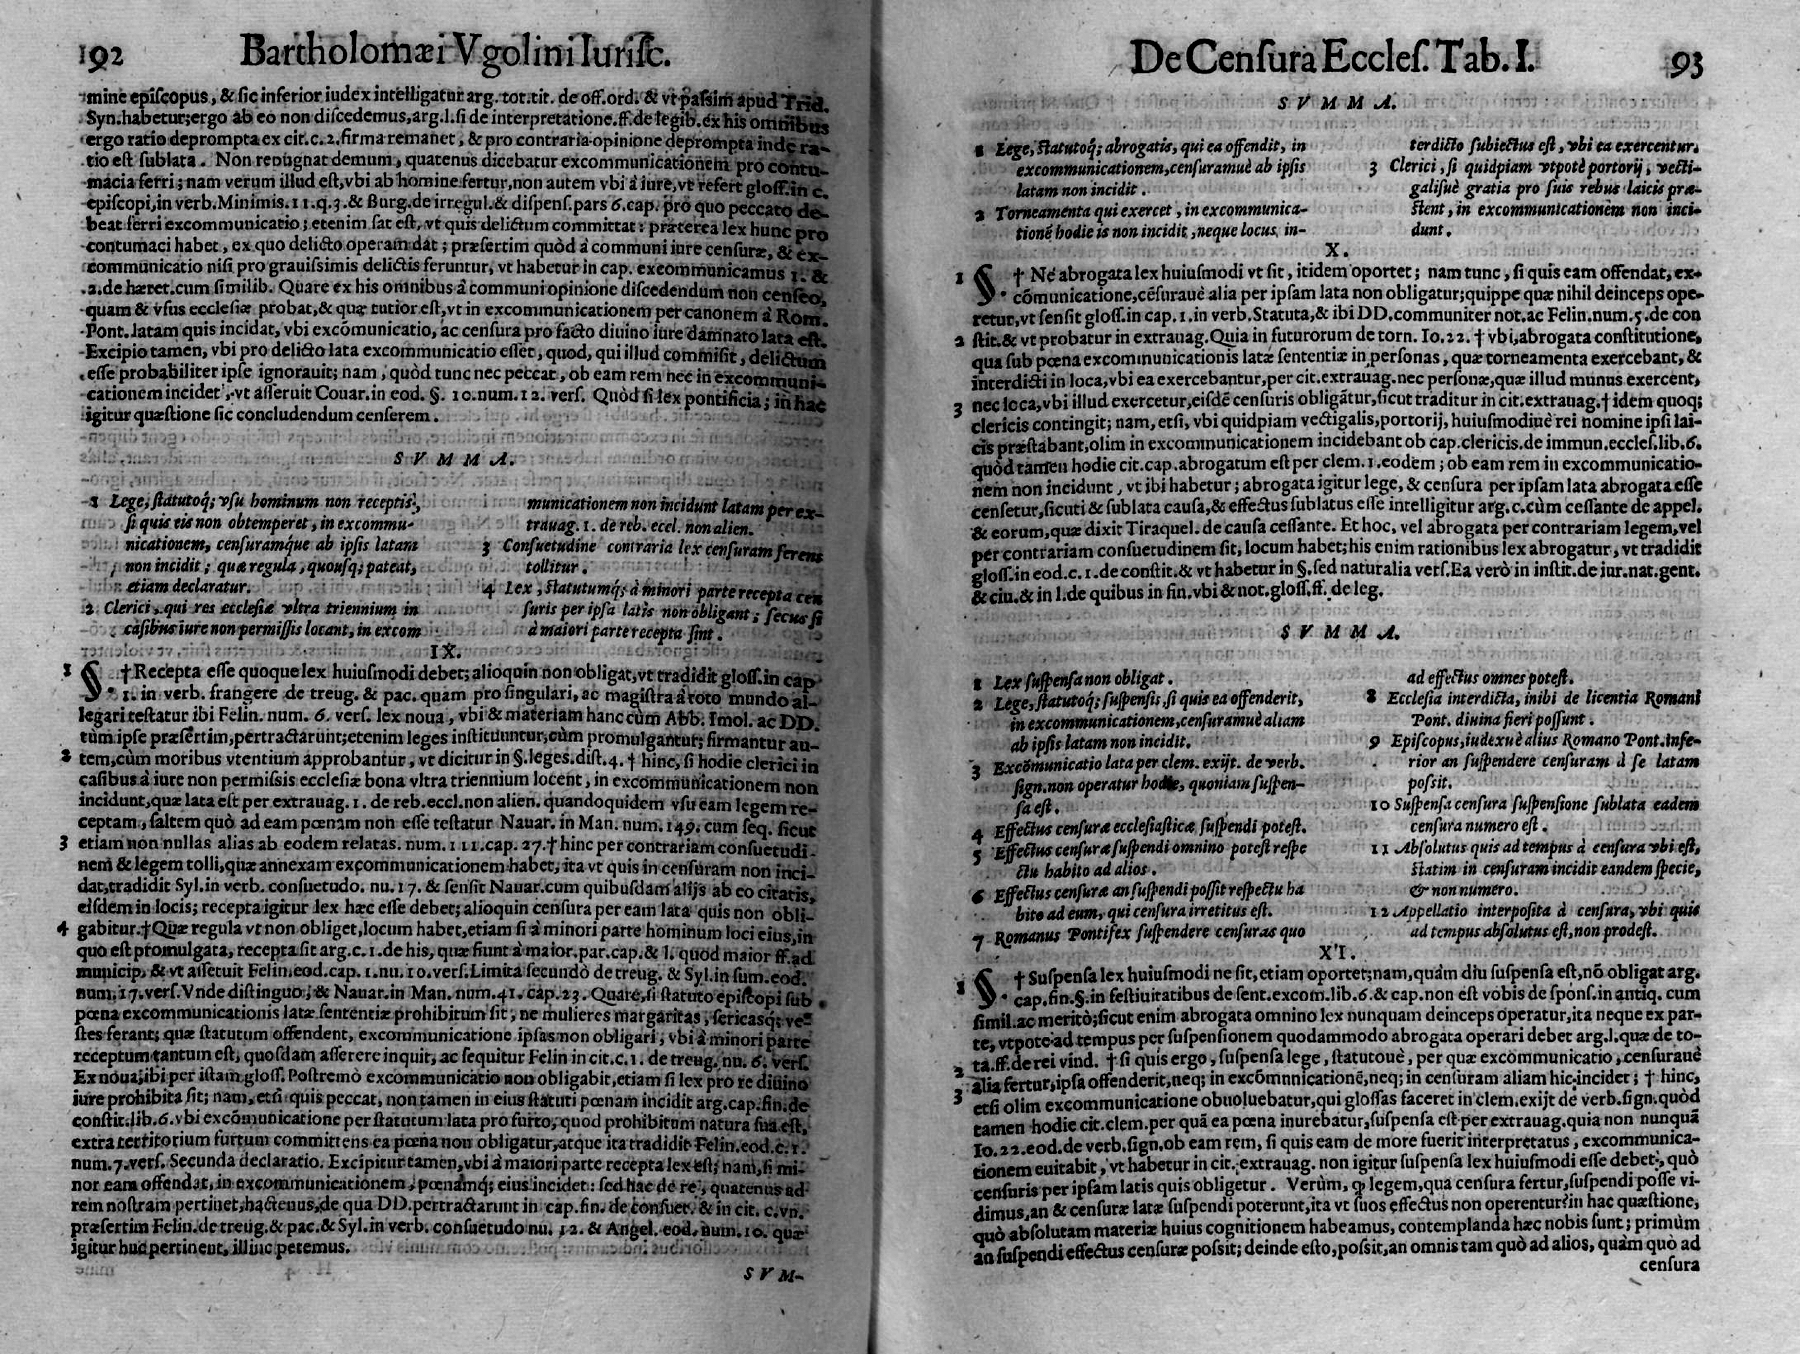 192 Bartholomæi Vgolini Iurisc.
mine episcopus, & sic inferior iudex intelligatur arg. tot. tit. de off. ord. & vt passim apud Trid.
Syn. habetur; ergo ab eo non discedemus, arg. l. si de interpretatione. ff. de legib. ex his omnibus
ergo ratio deprompta ex cit. c. 2. firma remanet, & pro contraria opinione deprompta inde ra-
tio est sublata. Non repugnat demum, quatenus dicebatur excommunicationem pro contu-
macia ferri; nam verum illud est, vbi ab homine fertur, non autem vbi à iure, vt refert gloss. in c.
episcopi, in verb. Minimis. 11. q. 3. & Burg. de irregul. & dispens. pars 6. cap. pro quo peccato de-
beat ferri excommunicatio; etenim sat est, vt quis delictum committat: præterea lex hunc pro
contumaci habet, ex quo delicto operam dat; præsertim quòd à communi iure censuræ, & ex-
communicatio nisi pro grauissimis delictis feruntur, vt habetur in cap. excommunicamus 1. &
.2. de hæret. cum similib. Quare ex his omnibus à communi opinione discedendum non censeo,
quam & vsus ecclesiæ probat, & quæ tutior est, vt in excommunicationem per canonem à Rom.
Pont. latam quis incidat, vbi excõmunicatio, ac censura pro facto diuino iure damnato lata est.
Excipio tamen, vbi pro delicto lata excommunicatio esset, quod, qui illud commisit, delictum
esse probabiliter ipse ignorauit; nam, quòd tunc nec peccat, ob eam rem nec in excommuni-
cationem incidet, vt asseruit Couar. in eod. §. 10. num. 12. vers. Quòd si lex pontificia; in hac
igitur quæstione sic concludendum censerem.
S V M M A.
1 Lege, statutoq́; vsu hominum non receptis,
si quis eis non obtemperet, in excommu-
nicationem, censuramq́ue ab ipsis latam
non incidit; quæ regula, quousq; pateat,
etiam declaratur.
2 Clerici, qui res ecclesiæ vltra triennium in
casibus iure non permissis locant, in excom
municationem non incidunt latam per ex-
trauag. 1. de reb. eccl. non alien.
3 Consuetudine contraria lex censuram ferens
tollitur.
4 Lex, statutumq́; à minori parte recepta cen
suris per ipsa latis non obligant; secus si
à maiori parte recepta sint.
IX.
1 §. † Recepta esse quoque lex huiusmodi debet; alioquin non obligat, vt tradidit gloss. in cap
1. in verb. frangere de treug. & pac. quam pro singulari, ac magistra à toto mundo al-
legari testatur ibi Felin. num. 6. vers. lex noua, vbi & materiam hanc cùm Abb. Imol. ac DD.
tùm ipse præsertim, pertractarunt; etenim leges instituuntur, cùm promulgantur; firmantur au-
2 tem, cùm moribus vtentium approbantur, vt dicitur in §. leges. dist. 4. † hinc, si hodie clerici in
casibus à iure non permissis ecclesiæ bona vltra triennium locent, in excommunicationem non
incidunt, quæ lata est per extrauag. 1. de reb. eccl. non alien. quandoquidem vsu eam legem re-
ceptam, saltem quò ad eam pœnam non esse testatur Nauar. in Man. num. 149. cum seq. sicut
3 etiam non nullas alias ab eodem relatas. num. 111. cap. 27. † hinc per contrariam consuetudi-
nem & legem tolli, quæ annexam excommunicationem habet, ita vt quis in censuram non inci-
dat, tradidit Syl. in verb. consuetudo. nu. 17. & sensit Nauar. cum quibusdam alijs ab eo citatis,
eisdem in locis; recepta igitur lex hæc esse debet; alioquin censura per eam lata quis non obli-
4 gabitur. † Quæ regula vt non obliget, locum habet, etiam si à minori parte hominum loci eius, in
quo est promulgata, recepta sit arg. c. 1. de his, quæ fiunt à maior. par. cap. & l. quod maior ff. ad
municip. & vt asseruit Felin. eod. cap. 1. nu. 10. vers. Limita secundò de treug. & Syl. in sum. eod.
num. 17. vers. Vnde distinguo; & Nauar. in Man. num. 41. cap. 23. Quare, si statuto episcopi sub
pœna excommunicationis latæ sententiæ prohibitum sit, ne mulieres margaritas, sericasq́; ve-
stes ferant; quæ statutum offendent, excommunicatione ipsas non obligari, vbi à minori parte
receptum tantum est, quosdam asserere inquit, ac sequitur Felin in cit. c. 1. de treug. nu. 6. vers.
Ex noua, ibi per istam gloss. Postremò excommunicatio non obligabit, etiam si lex pro re diuino
iure prohibita sit; nam, etsi quis peccat, non tamen in eius statuti pœnam incidit arg. cap. fin. de
constit. lib. 6. vbi excõmunicatione per statutum lata pro furto, quod prohibitum natura sua est,
extra territorium furtum committens ea pœna non obligatur, atque ita tradidit Felin. eod. c. 1.
num. 7. vers. Secunda declaratio. Excipitur tamen, vbi à maiori parte recepta lex est; nam, si mi-
nor eam offendat, in excommunicationem, pœnamq́; eius incidet: sed hac de re, quatenus ad
rem nostram pertinet, hactenus, de qua DD. pertractarunt in cap. fin. de consuet. & in cit. c. vn.
præsertim Felin. de treug. & pac. & Syl. in verb. consuetudo nu. 12. & Angel. eod. num. 10. quæ
igitur huc pertinent, illinc petemus.
S V M-
De Censura Eccles. Tab. I. 93
S V M M A.
1 Lege, statutoq́; abrogatis, qui ea offendit, in
excommunicationem, censuramuè ab ipsis
latam non incidit.
2 Torneamenta qui exercet, in excommunica-
tionẽ hodie is non incidit, neque locus, in-
terdicto subiectus est, vbi ea exercentur.
3 Clerici, si quidpiam vtpotè portorij, vecti-
galisuè gratia pro suis rebus laicis præ-
stent, in excommunicationem non inci-
dunt.
X.
1 §. † Ne abrogata lex huiusmodi vt sit, itidem oportet; nam tunc, si quis eam offendat, ex-
cõmunicatione, cẽsurauè alia per ipsam lata non obligatur; quippe quæ nihil deinceps ope-
retur, vt sensit gloss. in cap. 1. in verb. Statuta, & ibi DD. communiter not. ac Felin. num. 5. de con
2 stit. & vt probatur in extrauag. Quia in futurorum de torn. Io. 22. † vbi, abrogata constitutione,
qua sub pœna excommunicationis latæ sententiæ in personas, quæ torneamenta exercebant, &
interdicti in loca, vbi ea exercebantur, per cit. extrauag. nec personæ, quæ illud munus exercent,
3 nec loca, vbi illud exercetur, eisdẽ censuris obligãtur, sicut traditur in cit. extrauag. † idem quoq;
clericis contingit; nam, etsi, vbi quidpiam vectigalis, portorij, huiusmodiuè rei nomine ipsi lai-
cis præstabant, olim in excommunicationem incidebant ob cap. clericis. de immun. eccles. lib. 6.
quòd tamen hodie cit. cap. abrogatum est per clem. 1. eodem; ob eam rem in excommunicatio-
nem non incidunt, vt ibi habetur; abrogata igitur lege, & censura per ipsam lata abrogata esse
censetur, sicuti & sublata causa, & effectus sublatus esse intelligitur arg. c. cùm cessante de appel.
& eorum, quæ dixit Tiraquel. de causa cessante. Et hoc, vel abrogata per contrariam legem, vel
per contrariam consuetudinem sit, locum habet; his enim rationibus lex abrogatur, vt tradidit
gloss. in eod. c. 1. de constit. & vt habetur in §. sed naturalia vers. Ea verò in instit. de iur. nat. gent.
& ciu. & in l. de quibus in fin. vbi & not. gloss. ff. de leg.
S V M M A.
1 Lex suspensa non obligat.
2 Lege, statutoq́; suspensis, si quis ea offenderit,
in excommunicationem, censuramuè aliam
ab ipsis latam non incidit.
3 Excõmunicatio lata per clem. exijt. de verb.
sign. non operatur hodie, quoniam suspen-
sa est.
4 Effectus censuræ ecclesiasticæ suspendi potest.
5 Effectus censuræ suspendi omnino potest respe
ctu habito ad alios.
6 Effectus censuræ an suspendi possit respectu ha
bito ad eum, qui censura irretitus est.
7 Romanus Pontifex suspendere censuras quo
ad effectus omnes potest.
8 Ecclesia interdicta, inibi de licentia Romani
Pont. diuina fieri possunt.
9 Episcopus, iudexuè alius Romano Pont. infe-
rior an suspendere censuram à se latam
possit.
10 Suspensa censura suspensione sublata eadem
censura numero est.
11 Absolutus quis ad tempus à censura vbi est,
statim in censuram incidit eandem specie,
& non numero.
12 Appellatio interposita à censura, vbi quis
ad tempus absolutus est, non prodest.
XI.
1 §. † Suspensa lex huiusmodi ne sit, etiam oportet; nam, quàm diu suspensa est, nõ obligat arg.
cap. fin. §. in festiuitatibus de sent. excom. lib. 6. & cap. non est vobis de spons. in antiq. cum
simil. ac meritò; sicut enim abrogata omnino lex nunquam deinceps operatur, ita neque ex par-
te, vtpote ad tempus per suspensionem quodammodo abrogata operari debet arg. l. quæ de to-
2 ta. ff. de rei vind. † si quis ergo, suspensa lege, statutouè, per quæ excõmunicatio, censurauè
3 alia fertur, ipsa offenderit, neq; in excõmnnicationẽ, neq; in censuram aliam hic incidet; † hinc,
etsi olim excommunicatione obuoluebatur, qui glossas faceret in clem. exijt de verb. sign. quòd
tamen hodie cit. clem. per quã ea pœna inurebatur, suspensa est per extrauag. quia non nunquã
Io. 22. eod. de verb. sign. ob eam rem, si quis eam de more fuerit interpretatus, excommunica-
tionem euitabit, vt habetur in cit. extrauag. non igitur suspensa lex huiusmodi esse debet, quò
censuris per ipsam latis quis obligetur. Verùm, q̃ legem, qua censura fertur, suspendi posse vi-
dimus, an & censuræ latæ suspendi poterunt, ita vt suos effectus non operentur? in hac quæstione,
quò absolutam materiæ huius cognitionem habeamus, contemplanda hæc nobis sunt; primùm
an suspendi effectus censuræ possit; deinde esto, possit, an omnis tam quò ad alios, quàm quò ad
censura